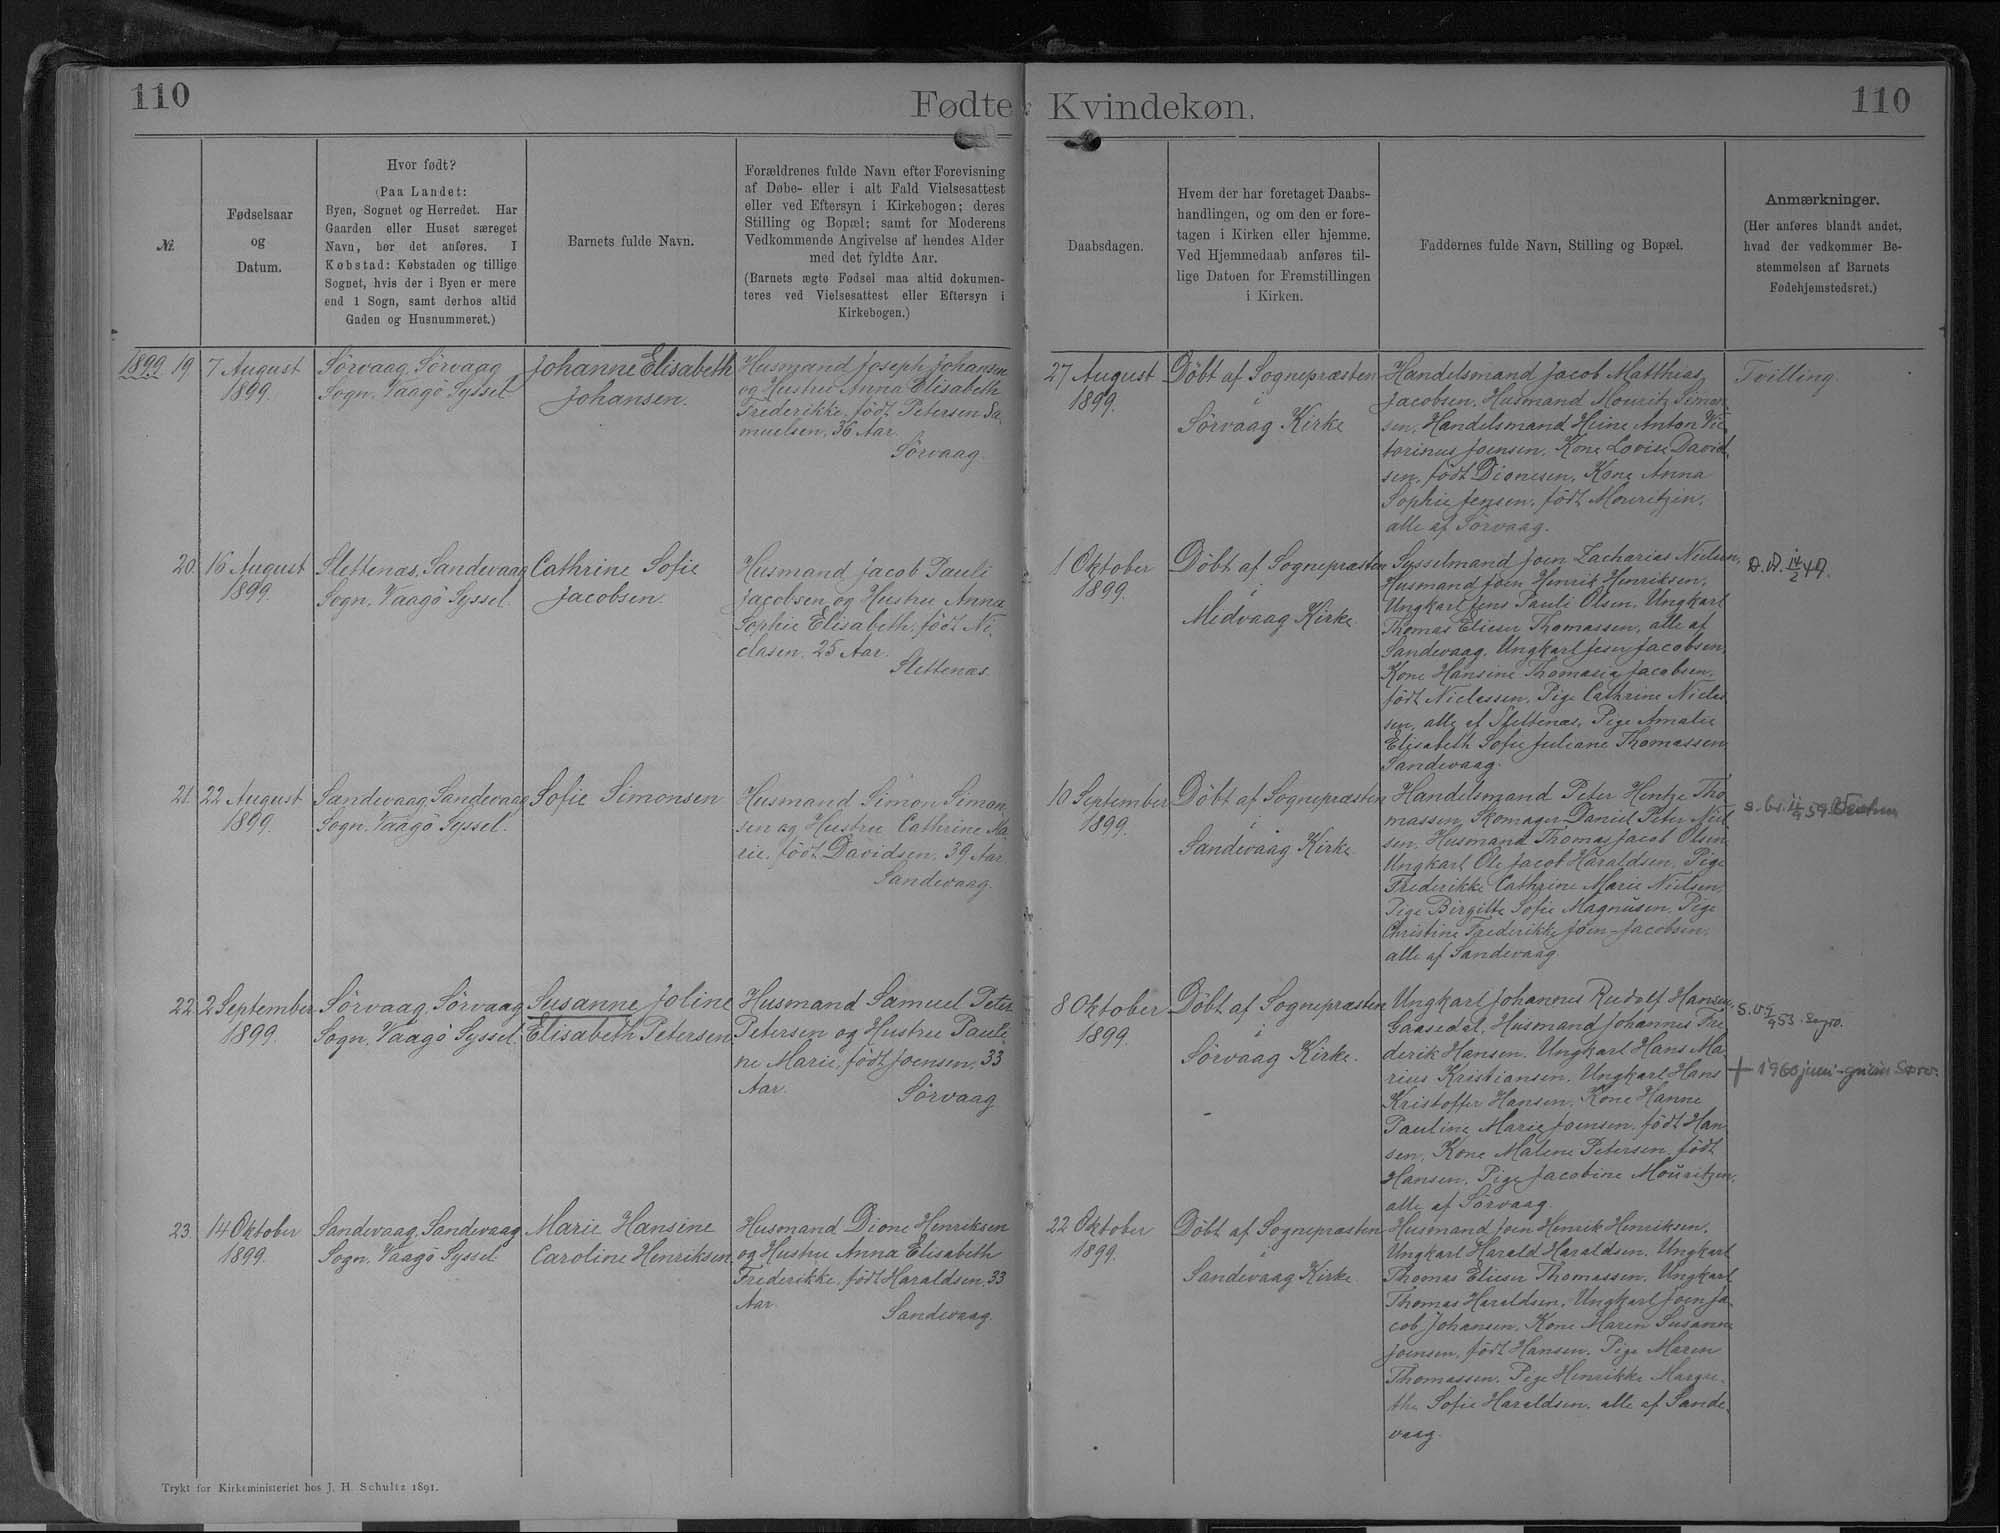 110
Fødte
Kvindekøn.
110
№
Fødselsaar
og
Datum.
Hvor født?
(Paa Landet:
Byen, Sognet og Herredet. Har
Gaarden eller Huset særeget
Navn, bør det anføres. I
Købstad: Købstaden og tillige
Sognet, hvis der i Byen er mere
end 1 Sogn, samt derhos altid
Gaden og Husnummeret.)
Barnets fulde Navn.
Forældrenes fulde Navn efter Forevisning
af Døbe- eller i alt Fald Vielsesattest
eller ved Eftersyn i Kirkebogen; deres
Stilling og Bopæl; samt for Moderens
Vedkommende Angivelse af hendes Alder
med det fyldte Aar.
(Barnets ægte Fødsel maa altid dokumen-
teres ved Vielsesattest eller Eftersyn i
Kirkebogen.)
Daabsdagen.
Hvem der har foretaget Daabs-
handlingen, og om den er fore-
tagen i Kirken eller hjemme.
Ved Hjemmedaab anføres til-
lige Datoen for Fremstillingen
i Kirken.
Faddernes fulde Navn, Stilling og Bopæl.
Anmærkninger.
(Her anføres blandt andet,
hvad der vedkommer Be-
stemmelsen af Barnets
Fødehjemstedsret.)
1899 19
7 August
1899.
Sørvaag, Sørvaag
Sogn. Vaagø Syssel
Johanne Elisabeth
Johansen.
Husmand Joseph Johansen
og Hustru Anna Elisabeth
Frederikke, født Petersen Sa-
muelsen, 36 Aar.
Sørvaag.
27 August
1899.
Døbt af Sognepræsten
i
Sørvaag Kirke
Handelsmand Jacob Matthias
Jacobsen, Husmand Mouritz Simon-
sen, Handelsmand Heine Anton Vic-
torinus Joensen, Kone Lovise David-
sen, født Dionesen, Kone Anna
Sophie Jensen, født Mouritzen,
alle af Sørvaag.
Tvilling.
20.
16 August
1899.
Slettenæs, Sandevaag
Sogn. Vaagø Syssel.
Cathrine Sofie
Jacobsen.
Husmand Jacob Pauli
Jacobsen og Hustru Anna
Sophie Elisabeth, født Ni-
clasen, 25 Aar.
Slettenæs.
1 Oktober
1899.
Døbt af Sognepræsten
i
Midvaag Kirke
Sysselmand Joen Zacharias Nielsen,
Husmand Joen Henrik Henriksen,
Ungkarl Jens Pauli Olsen, Ungkarl
Thomas Elieser Thomassen, alle af
Sandevaag, Ungkarl Jesper Jacobsen,
Kone Hansine Thomasia Jacobsen,
født Niclassen, Pige Cathrine Niclas-
sen, alle af Slettenæs, Pige Amalie
Elisabeth Sofie Juliane Thomassen
Sandevaag.
21.
22 August
1899.
Sandevaag, Sandevaag
Sogn. Vaagø Syssel.
Sofie Simonsen
Husmand Simon Simon-
sen og Hustru Cathrine Ma-
rie, født Davidsen, 39 Aar
Sandevaag.
10 September
1899.
Døbt af Sognepræsten
i
Sandevaag Kirke.
Handelsmand Peter Hentze Tho-
massen, Skomager Daniel Peter Niel-
sen, Husmand Thomas Jacob Olsen,
Ungkarl Ole Jacob Haraldsen, Pige
Frederikke Cathrine Marie Nielsen,
Pige Birgitte Sofie Magnusen, Pige
Christine Frederikke Joen-Jacobsen,
alle af Sandevaag
22.
2 September
1899.
Sørvaag, Sørvaag
Sogn, Vaagø Syssel.
Susanne Joline
Elisabeth Petersen
Husmand Samuel Peter
Petersen og Hustru Pauli-
ne Marie, født Joensen, 33
Aar.
Sørvaag
8 Oktober
1899.
Døbt af Sognepræsten
i
Sørvaag Kirke.
Ungkarl Johannes Rudolf Hansen,
Gaasedal, Husmand Johannes Fre-
derik Hansen, Ungkarl Hans Ma-
rius Kristiansen, Ungkarl Hans
Kristoffer Hansen, Kone Hanne
Pauline Marie Joensen, født Han-
sen, Kone Malene Petersen, født
Hansen, Pige Jacobine Mouritzen,
alle af Sørvaag.
+ 1960 juni
23.
14 Oktober
1899.
Sandevaag, Sandevaag
Sogn, Vaagø Syssel
Marie Hansine
Caroline Henriksen
Husmand Dione Henriksen
og Hustru Anna Elisabeth
Frederikke, født Haraldsen, 33
Aar.
Sandevaag.
22 Oktober
1899.
Døbt af Sognepræsten
i
Sandevaag Kirke.
Husmand Joen Henrik Henriksen,
Ungkarl Harald Haraldsen, Ungkarl
Thomas Elieser Thomassen, Ungkarl
Thomas Haraldsen, Ungkarl Joen Ja-
cob Johansen, Kone Maren Susanne
Joensen, født Hansen, Pige Maren
Thomassen, Pige Henrikke Margre-
the Sofie Haraldsen, alle af Sande-
vaag.
Trykt for Kirkeministeriet hos J. H. Schultz 1891.